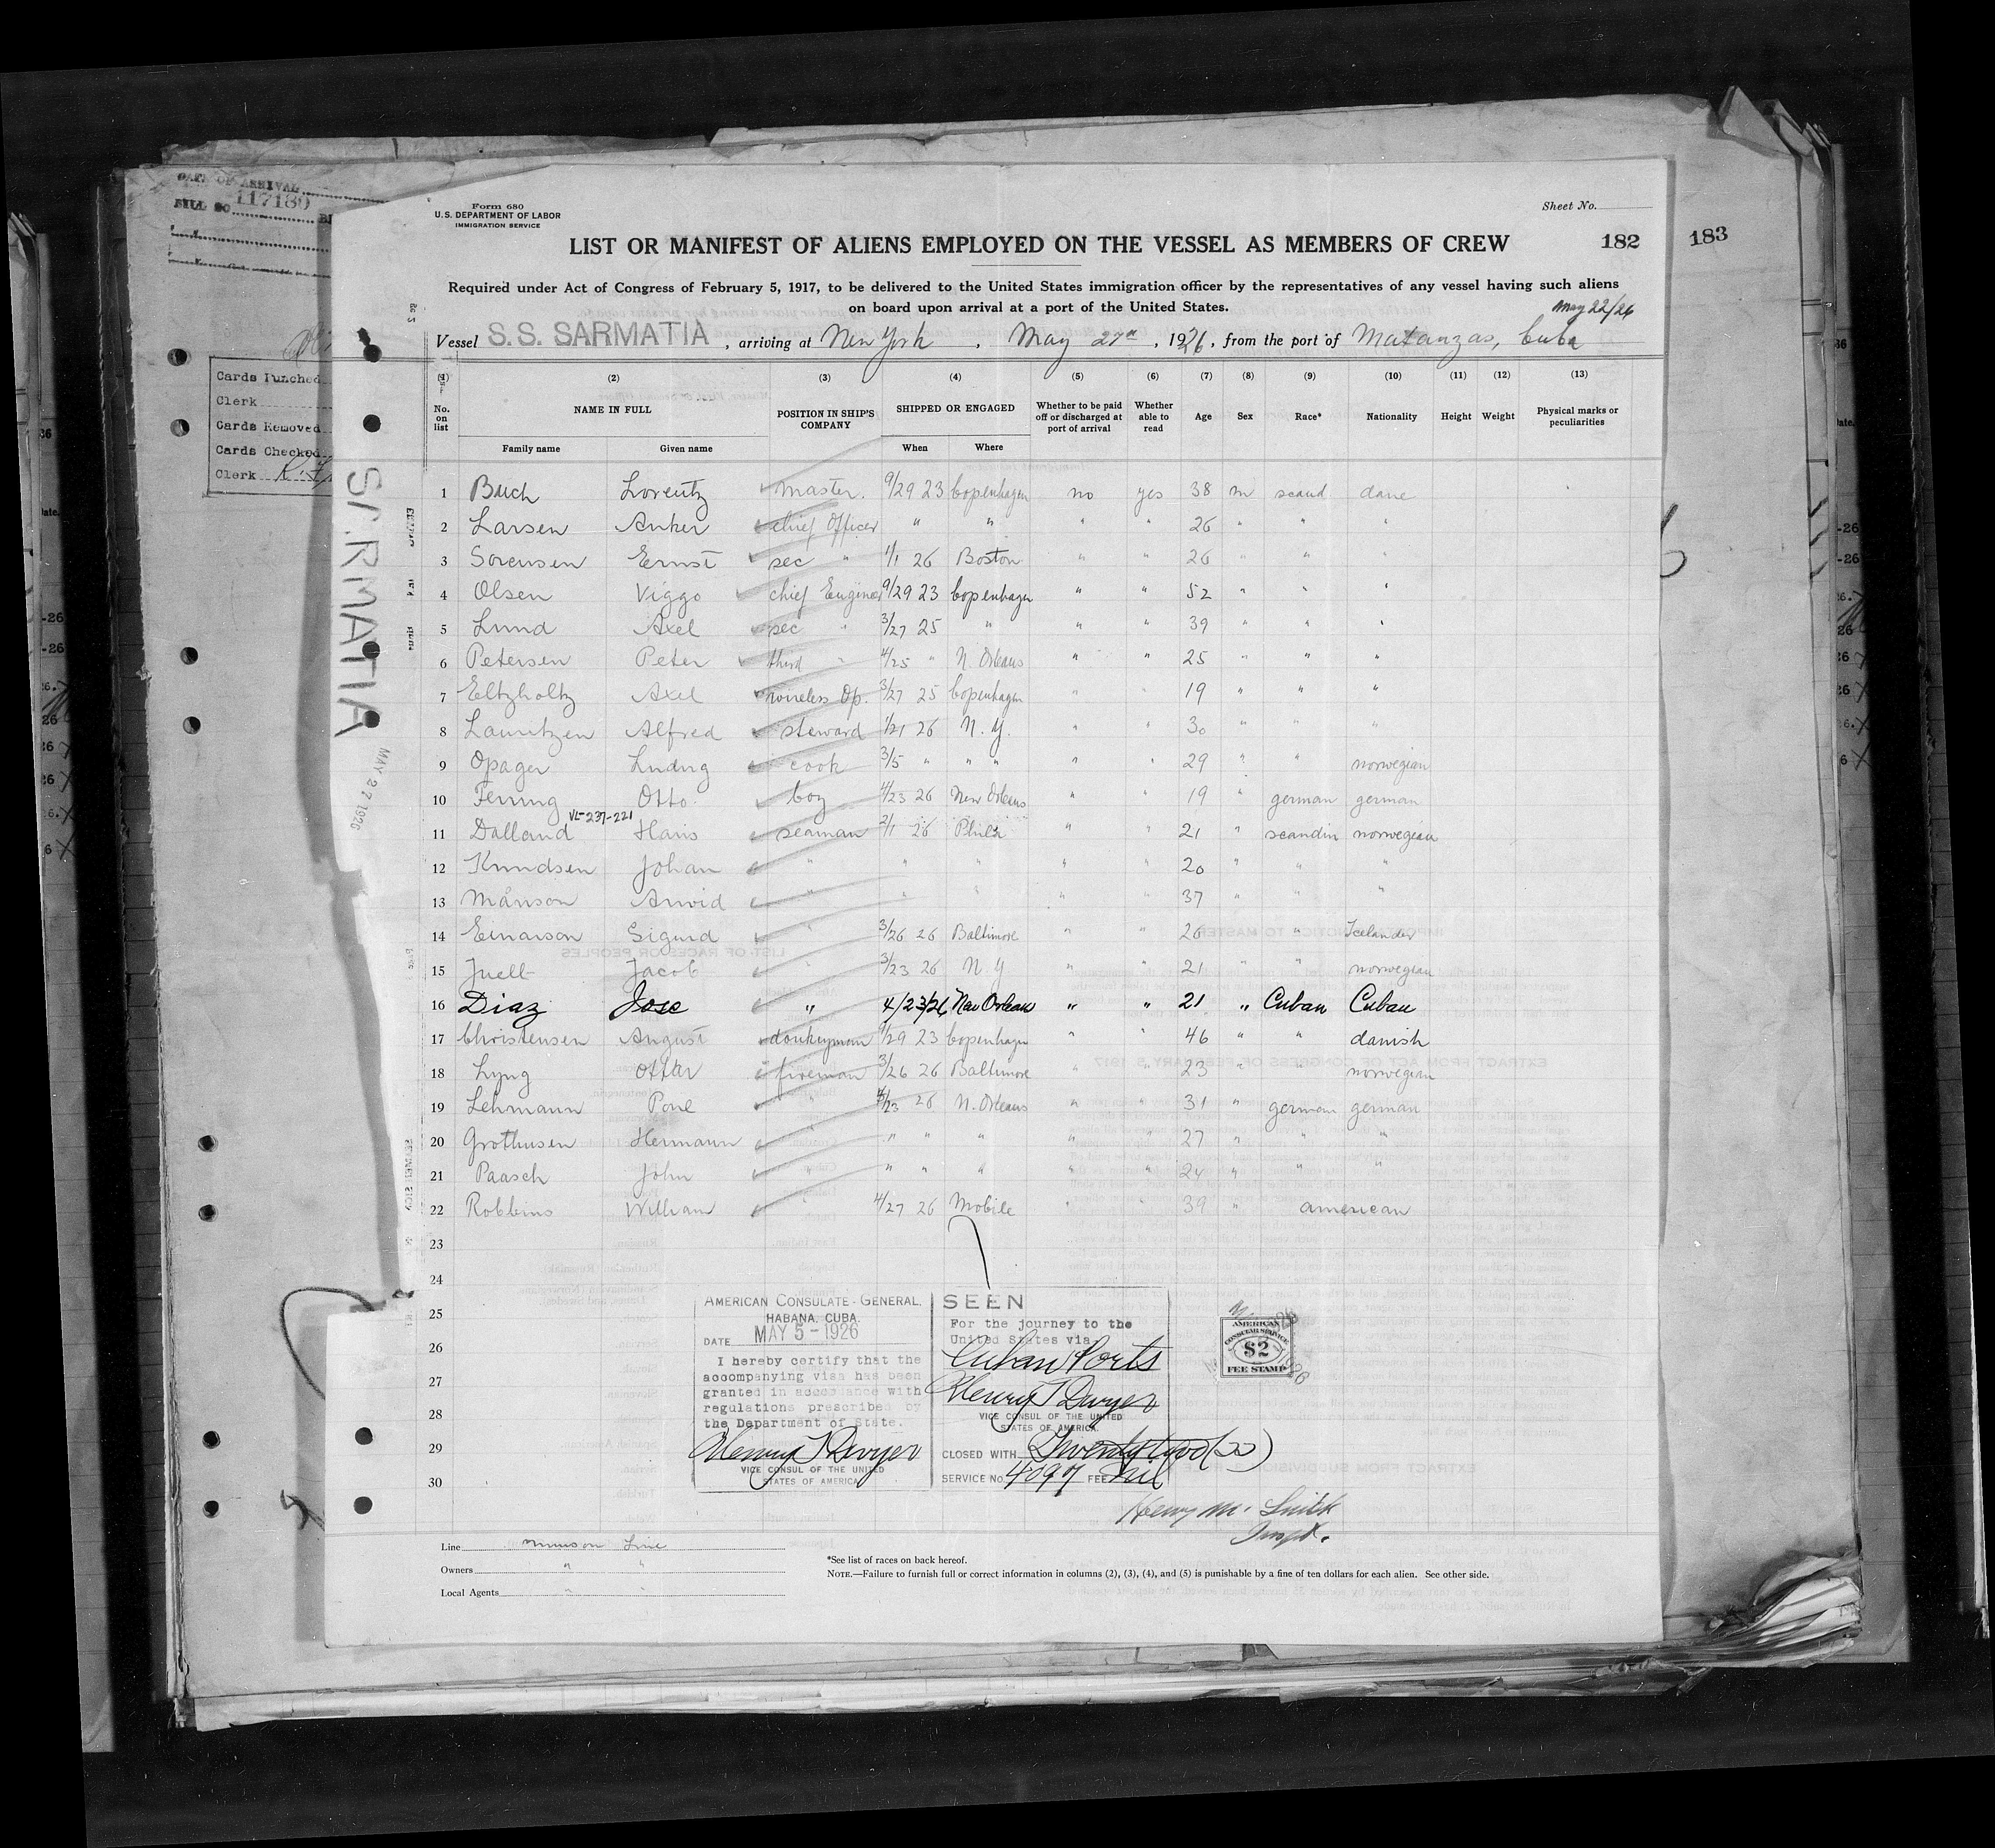 DATE OF ARRIVAL
BILL NO 117180
Cards Punched
Clerk
Cards Removed
Cards Checked
Clerk
Form 680
U.S. DEPARTMENT OF LABOR
IMMIGRATION SERVICE
Sheet No.
LIST OR MANIFEST OF ALIENS EMPLOYED ON THE VESSEL AS MEMBERS OF CREW 182 183
Required under Act of Congress of February 5, 1917, to be delivered to the United States immigration officer by the representatives of any vessel having such aliens
on board upon arrival at a port of the United States.
May 22/26
Vessel S.S. SARMATIA, arriving at New York, May 27th, 1926, from the port of Matanzas, Cuba
(1) (2) (3) (4) (5) (6) (7) (8) (9) (10) (11) (12) (13)
No. on list NAME IN FULL POSITION IN SHIP'S COMPANY SHIPPED OR ENGAGED Whether to be paid off or discharged at port of arrival Whether able to read Age Sex Race* Nationality Height Weight Physical marks or peculiarities
Family name Given name When Where
1 Buch Lorentz master. 9/29 23 Copenhagen no yes 38 m scand dane
2 Larsen Anker chief Officer " " " " 26 " " "
3 Sorensen Ernst sec " 1/1 26 Boston " " 26 " " "
4 Olsen Viggo chief Engineer 9/29 23 Copenhagen " " 52 " " "
5 Lund Axel sec " 3/27 25 " " " 39 " " "
6 Petersen Peter third " 4/25 " N. Orleans " " 25 " " "
7 Eltzholtz Axel wireless Op. 3/27 25 Copenhagen " " 19 " " "
8 Lauritzen Alfred steward 1/21 26 N.Y. " " 30 " " "
9 Opager Ludvig cook 3/5 " " " " " 29 " " norwegian
10 Ferring Otto boy 4/23 26 New Orleans " " 19 " german german
VL-237-221
11 Dalland Hans seaman 2/1 26 Phila " " 21 " scandin norwegian
12 Knudsen Johan " " " " " 20 " " "
13 Månson Arvid " " " " 37 " " "
14 Einarson Sigurd " 3/26 26 Baltimore " " 26 " " Icelander
15 Juell Jacob " 3/23 26 N Y " " 21 " " norwegian
16 Diaz Jose " 4/23/26 New Orleans " " 21 " Cuban Cuban
17 Christensen August donkeyman 9/29 23 Copenhagen " " 46 " " danish
18 Lyng Ottar fireman 3/26 26 Baltimore " " 23 " " norwegian
19 Lehmann " 4/23 26 N. Orleans " " 31 " german german
20 Grothusen Hermann " " " " " " 27 " " "
21 Paasch John " " " " " " 24 " " "
22 Robbins William " 4/27 26 Mobile " " 39 " american
23
24
25
26
27
28
29
30
SARMATIA
MAY 27 1926
AMERICAN CONSULATE-GENERAL,
HABANA, CUBA.
DATE MAY 5 - 1926
I hereby certify that the
accompanying visa has been
granted in accordance with
regulations prescribed by
the Department of State.
Henry T Dwyer
VICE CONSUL OF THE UNITED
STATES OF AMERICA
SEEN
For the journey to the
United States via
Cuban Ports
Henry T Dwyer
VICE CONSUL OF THE UNITED
STATES OF AMERICA.
CLOSED WITH Twenty two (22)
SERVICE No. 4097 FEE Nil
AMERICAN
CONSULAR SERVICE
$2
FEE STAMP
Henry M. Smith
Inspt.
Line Munson Line
Owners " "
Local Agents " "
*See list of races on back hereof.
NOTE.—Failure to furnish full or correct information in columns (2), (3), (4), and (5) is punishable by a fine of ten dollars for each alien. See other side.